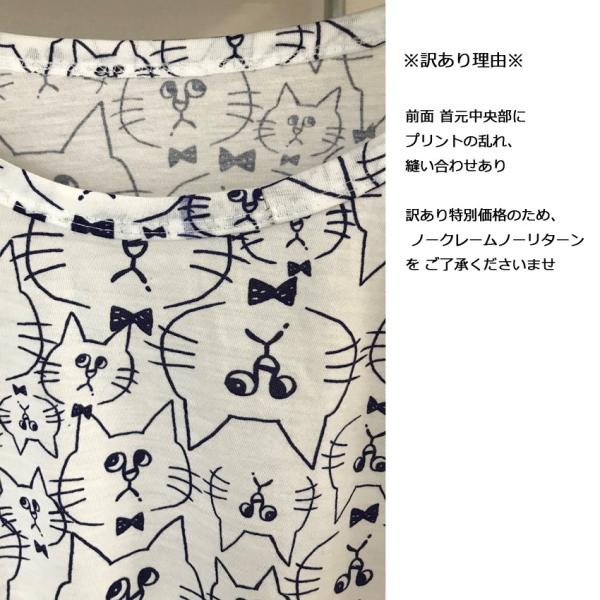 ※訳あり理由※
前面 首元中央部に
プリントの乱れ、
縫い合わせあり
訳あり特別価格のため、
ノークレームノーリターン
を ご了承くださいませ